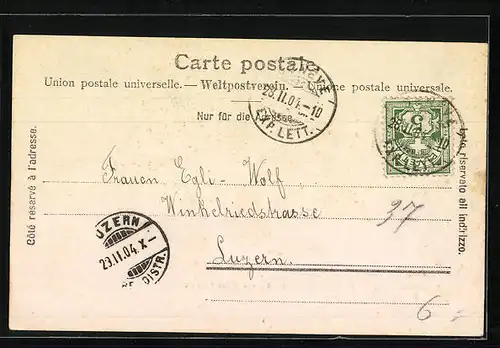 Carte postale.
Union postale universelle. — Weltpostverein. — Unione postale universale.
Nur für die Adresse
GENÈVE
23.II.04.-10
EXP. LETT.
5
Côté réservé à l'adresse.
lato riservato all indirizzo.
Frauen Egli-Wolf
Winkelriedstrasse
37
Luzern.
LUZERN
23.II.04.X-
DISTR.
6